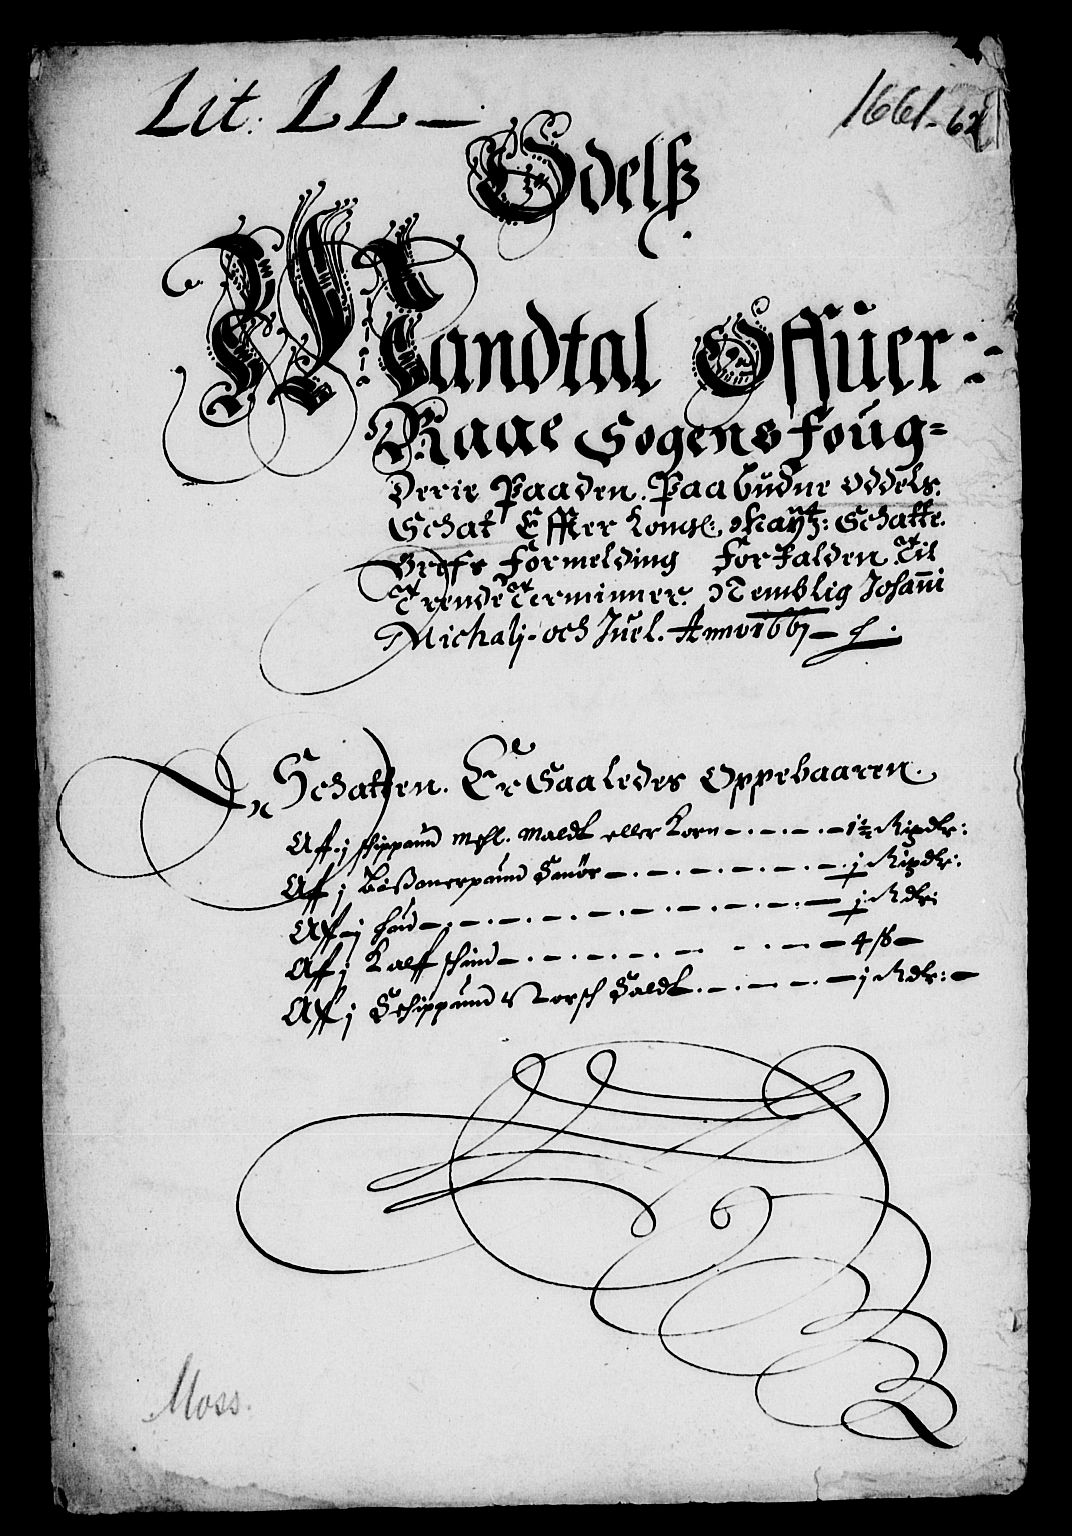 Lit: LL —
1661-62
Odelß
Mandtal Offuer:
Raae Sogens foug=
Derie Paa den Paabudne oddels
Schat Effter Kongl: Maytz: Schatte
Brefs Formelding Forfalden Til
Trende Terminner. Nemblig Johanni
Michalj. och Juel. Anno 1661 —
Schatten. Er Saaledes Oppebaaren.
Aff j schippund Mehl. Maldt eller Korn — 1½ Rixdlr:
Aff j Bißmerpund Smör — j Rixdlr:
Aff j Hud — j Rdlr
Aff j Kalffschind — 4 ß —
Aff j Schippund Norsch Saldt — j Rdlr: —
Moss.